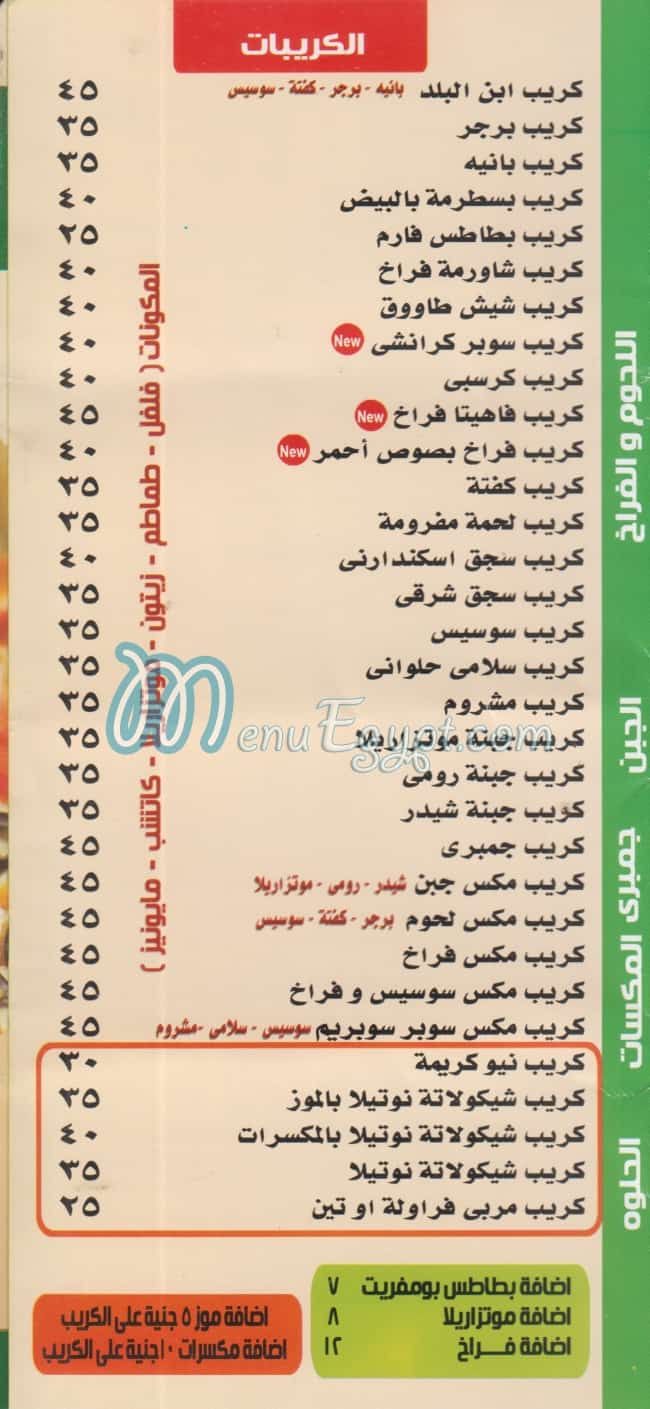 الكريبات
كريب ابن البلد بانيه - برجر - كفتة - سوسيس ٤٥
كريب برجر ٣٥
كريب بانيه ٣٥
كريب بسطرمة بالبيض ٤٠
كريب بطاطس فارم ٢٥
كريب شاورمة فراخ ٤٠
كريب شيش طاووق ٤٠
كريب سوبر كرانشى New ٤٠
كريب كرسبى ٤٠
كريب فاهيتا فراخ New ٤٥
كريب فراخ بصوص أحمر New ٤٠
كريب كفتة ٣٥
كريب لحمة مفرومة ٣٥
كريب سجق اسكندارنى ٤٠
كريب سجق شرقى ٣٥
كريب سوسيس ٣٥
كريب سلامى حلوانى ٣٥
كريب مشروم ٣٥
كريب جبنة موتزاريلا ٣٥
كريب جبنة رومى ٣٥
كريب جبنة شيدر ٣٥
كريب جمبرى ٤٥
كريب مكس جبن شيدر - رومى - موتزاريلا ٤٥
كريب مكس لحوم برجر - كفتة - سوسيس ٤٥
كريب مكس فراخ ٤٥
كريب مكس سوسيس و فراخ ٤٥
كريب مكس سوبر سوبريم سوسيس - سلامى -مشروم ٤٥
كريب نيو كريمة ٣٠
كريب شيكولاتة نوتيلا بالموز ٣٥
كريب شيكولاتة نوتيلا بالمكسرات ٤٠
كريب شيكولاتة نوتيلا ٣٥
كريب مربى فراولة او تين ٢٥
المكونات ( فلفل - طماطم - زيتون - موتزاريلا - كاتشب - مايونيز )
اللحوم و الفراخ
الجبن
جمبرى المكسات
الحلوه
اضافة بطاطس بومفريت ٧
اضافة موتزاريلا ٨
اضافة فــراخ ١٢
اضافة موز ٥ جنية على الكريب
اضافة مكسرات ١٠ جنية على الكريب
MenuEgypt.com